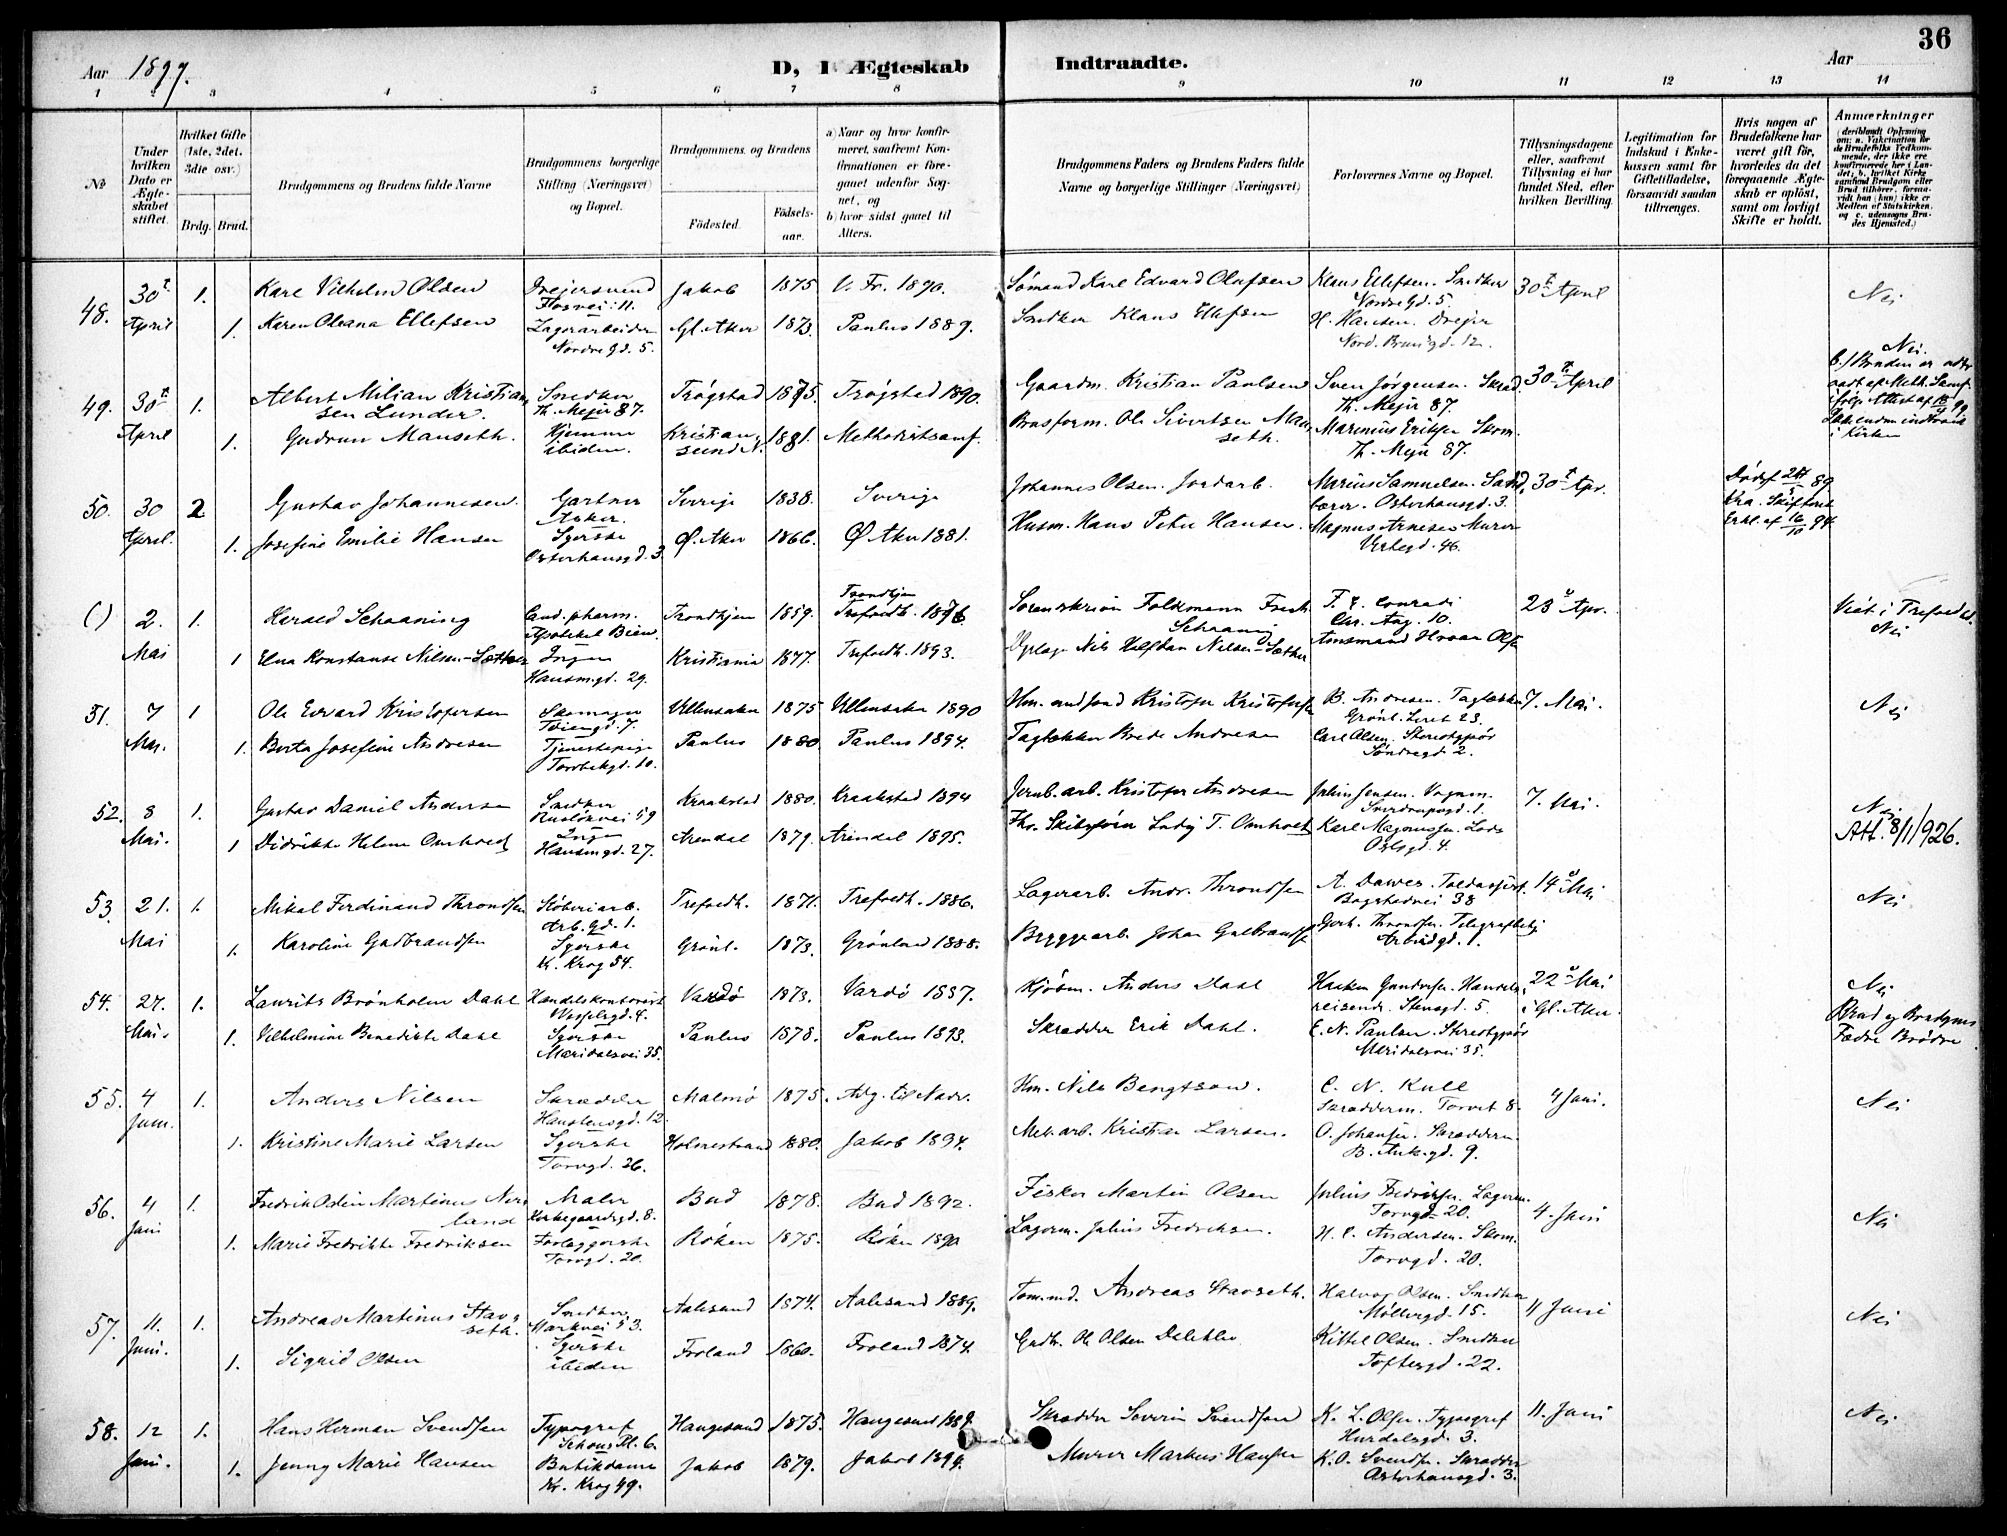 36
Aar 1897.
D, I Ægteskab Indtraadte.
Aar
1 2 3 4 5 6 7 8 9 10 11 12 13 14
No
Under hvilken Dato er Ægteskabet stiftet.
Hvilket Gifte (1ste, 2det. 3die osv.)
Brdg. Brud.
Brudgommens og Brudens fulde Navne
Brudgommens borgerlige Stilling (Næringsvei) og Bopæl.
Brudgommens og Brudens
Fødested.
Fødselsaar.
a) Naar og hvor konfirmeret, saafremt Konfirmationen er foregaaet udenfor Sognet, og
b) hvor sidst gaaet til Alters.
Brudgommens Faders og Brudens Faders fulde Navne og borgerlige Stillinger (Næringsvei)
Forlovernes Navne og Bopæl.
Tillysningsdagene eller, saafremt Tillysning ei har fundet Sted, efter hvilken Bevilling.
Legitimation for Indskud i Enkekassen samt for Giftetilladelse, forsaavidt saadan tiltrænges.
Hvis nogen af Brudefolkene har været gift før, hvorledes da det foregaaende Ægteskab er opløst, samt om lovligt Skifte er holdt.
Anmærkninger
48. 30t 1. Karl Vilhelm Olsen Drejersvend Jakob 1875 V. Fr. 1890. Sømand Karl Edvard Olafsen Klaus Ellefsen. Snedker 30t April Nei
Fossvei. 11. Nordre Gd. 5.
April 1. Karen Oleana Ellefsen Lagerarbeider Gl. Aker 1873. Paulus 1889. Snedker Klaus Ellefsen H. Hansen. Drejer
Nordre Gd. 5. Nord. Brun gd. 12.
49. 30t 1. Albert Milian Kristiansen Lunder. Snedker Trøgstad 1875. Trøgstad 1890. Gaardm. Kristian Paulsen Sven Jørgensen. Skræd. 30t April Nei.
Th. Mejer 87. Th. Mejer 87.
April 1. Gudrun Manseth. Hjemme Kristiansund N. 1881. Methodistsamf. Brusform. Ole Sivertsen Manseth. Marinius Eriksen Skom.
ibidem. Th. Mejer 87.
b.) Bruden er
i Kirken
50. 30 2 Gustav Johannesen. Gartner Sverige 1838. Sverige Johannes Olsen. Jordarb. Marius Samuelsen. 30t Apr. Død
Aker. Osterhausgd. 3.
April. 1. Josefine Emilie Hansen Syerske Ø. Aker 1866. Ø Aker 1881. Husm. Hans Peter Hansen. Magnus Arnesen Murer
Osterhausgd. 3. Urtegd. 46.
() 2. 1. Harald Schaaning Cand. pharm. Trondhjem 1859. Trondhjem Trefoldh. 1876. Sorenskriver Folkmann Schaaning T. F. Conradi 23 Apr. Viet i Trefoldh.
Apotekel Bien. Chr. Aug. 10. Nei
Mai 1 Elna Konstanse Nilsen-Sætter Ingen Kristiania 1877. Trefoldh. 1893. Nils Halfdan Nilsen-Sæther Amsmand Olsen
Hausmgd. 29.
51. 7 1 Ole Edvard Kristofersen Skomager Ullensaker 1875 Ullensaker 1890 Hm. Kristofer Kristofersen B. Andresen. Tagtækker 7. Mai. Nei
Tøiengd. 7. Grønl. Leret 23.
Mai. 1. Berta Josefine Andresen Tjenestepige Paulus 1880 Paulus 1894. Tagtækker Brede Andresen Carl Olsen. Stereotypør
Torvbakgd. 10. Søndregd. 2.
52. 8 1. Gustav Daniel Andersen Snedker Kraakstad 1880. Kraakstad 1894 Jernb. arb. Kristofer Andresen Julius Jensen. Vognm. 7. Mai. Nei
Ruseløkvei 59 Sverdrupsgd. 1. Att. 8/1/926.
Mai. 1 Didrikke Helene Omholt Ingen Arendal 1879. Arendal 1895. Fhv. Skibsfører T. Omholt Karl Magnussen. Lods
Hausmgd. 27. Oslogd. 4.
53. 21. 1. Mikal Ferdinand Throndsen Støberiarb. Trefoldh. 1871. Trefoldh. 1886. Lagerarb. Andr. Throndsen A. Dawes. Toldassist. 14 Mai Nei
Arb. Gd. 1. Bogstadvei 38
Mai 1. Karoline Gudbrandsen Syerske Grønl. 1873. Grønland 1888. Bryggearb. Johan Gulbrandsen Gerh. Throndsen. Telegrafbetj.
K. Krog 54. Arbeidgd. 1.
54. 27. 1. Laurits Brønholm Dahl Handelskontorist Vardø 1873. Vardø 1887. Kjøbm. Anders Dahl Haakon Gundersen. Handelsreisende. Stensgd. 5. 22 Mai i Gl. Aker Nei
Wesselsgd. 4. Brud og Brudgoms
Mai. 1. Vilhelmine Benedikte Dahl Syerske Paulus 1878. Paulus 1893. Skrædder Erik Dahl. E. N. Paulsen. Stereotypør Fædre Brødre
Maridalsvei 35. Maridalsvei 35.
55. 4 1. Anders Nilsen Skrædder Malmø 1875. Adg. til Nadv. Hm. Nils Bengtson. C. N. Kull 4 Juni. Nei
Hanstensgd. 12. Skræderm. Torvet 8.
Juni. 1. Kristine Marie Larsen Syerske Holmestrand 1880. Jakob 1894. Mek. arb. Kristian Larsen. O. Johansen. Skrædderm.
Torvgd. 26. B. Ankgd. 9.
56. 4 1. Fredrik Odin Martinus Nerland Maler Bud 1878. Bud 1892. Fisker Martin Olsen Julius Fredriksen. Lagerm. 4. Juni Nei
Kirkegaardsgd. 8. Torvgd. 20.
Juni 1. Marie Fredrikke Fredriksen Forlæggerske Røken 1875. Røken 1890 Lagerm. Julius Fredriksen. H. C. Andersen. Skom.
Torvgd. 20. Torvgd. 20.
57. 11. 1. Andreas Martinus Stavseth. Snedker Aalesund 1874. Aalesund 1889. Tømmd. Andreas Stavseth. Halvor Olsen. Snedker 11 Juni Nei
Markvei 53. Møllergd. 15.
Juni. 1. Sigrid Olsen Syerske Froland 1860. Froland 1874. Gudb. Ole Olsen Delebkev Kittel Olsen. Snedker
ibidem Toftesgd. 22.
58. 12 1. Hans Herman Svendsen Typograf Haugesund 1875. Haugesund 1889. Skrædder Severin Svendsen K. L. Olsen. Typograf 11. Juni Nei
Schous Pl. 6. Hurdalsgd. 3.
Juni. 1. Jenny Marie Hansen Butikdame Jakob 1879. Jakob 1894. Murer Markus Hansen K. O. Svendsen. Skrædder
Kr. Krog 49. Osterhausgd. 3.